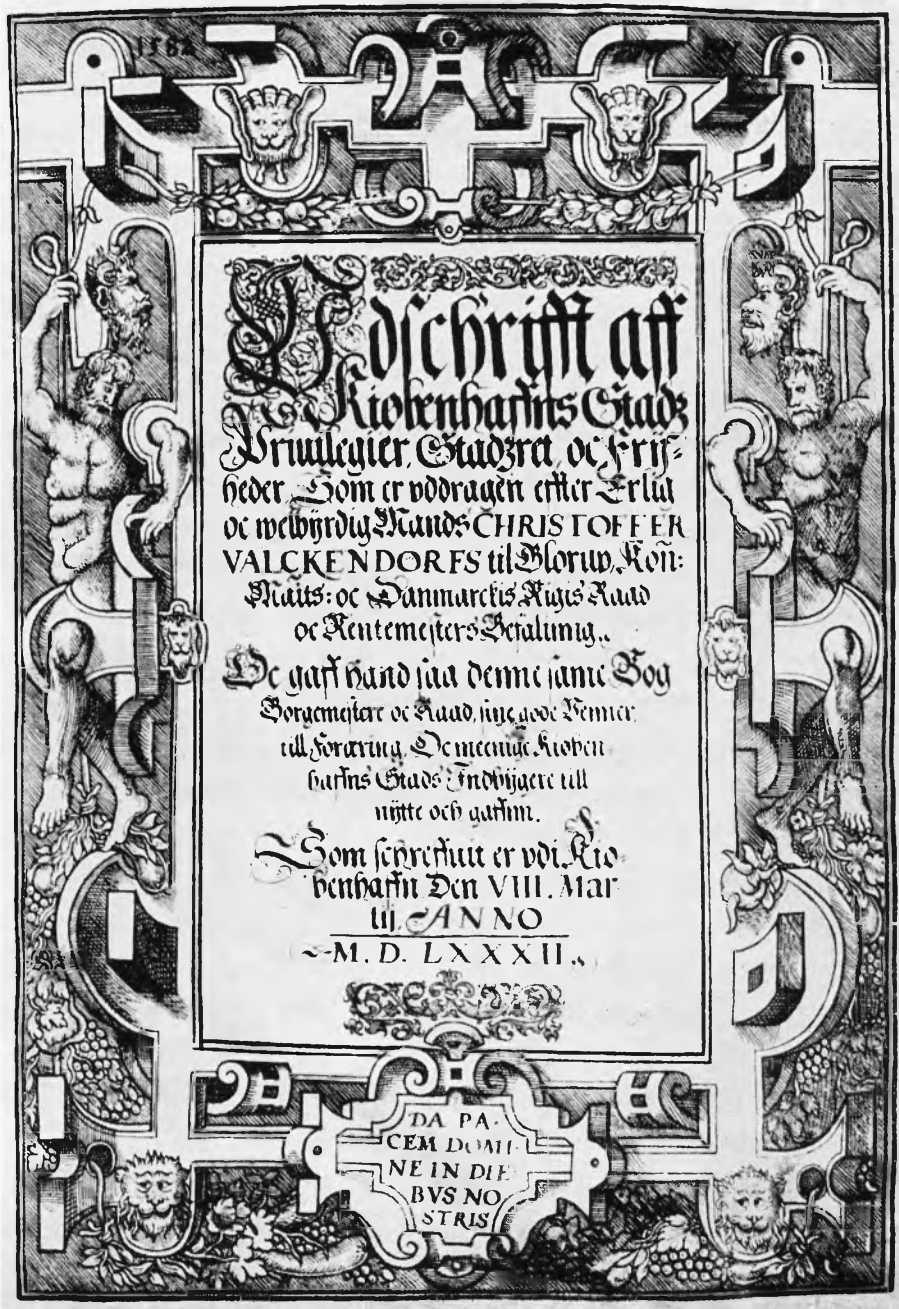 1582
Vdschrifft aff
Kiobenhaffns Stadz
Priuilegier, Stadzret, oc Frij=
heder, Som er vddragen effter Erlig
oc welbÿrdig Mands CHRISTOFFER
VALCKENDORFS til Glorup, Kon̄:
Maits: oc Danmarckis Rigis Raad
oc Rentemesters Befalning..
Oc gaff hand saa denne same Bog
Borgemestere oc Raad, sine gode Venner,
till foræring, Oc meenige Kioben
haffns Stads Indbÿgere till
nÿtte och gaffnn.
Som schreffuit er vdi Kio
benhaffn Den VIII. Mar
tij. ANNO
M. D. LXXXII..
DA PA-
CEM DOMI-
NE IN DIE
BVS NO
STRIS